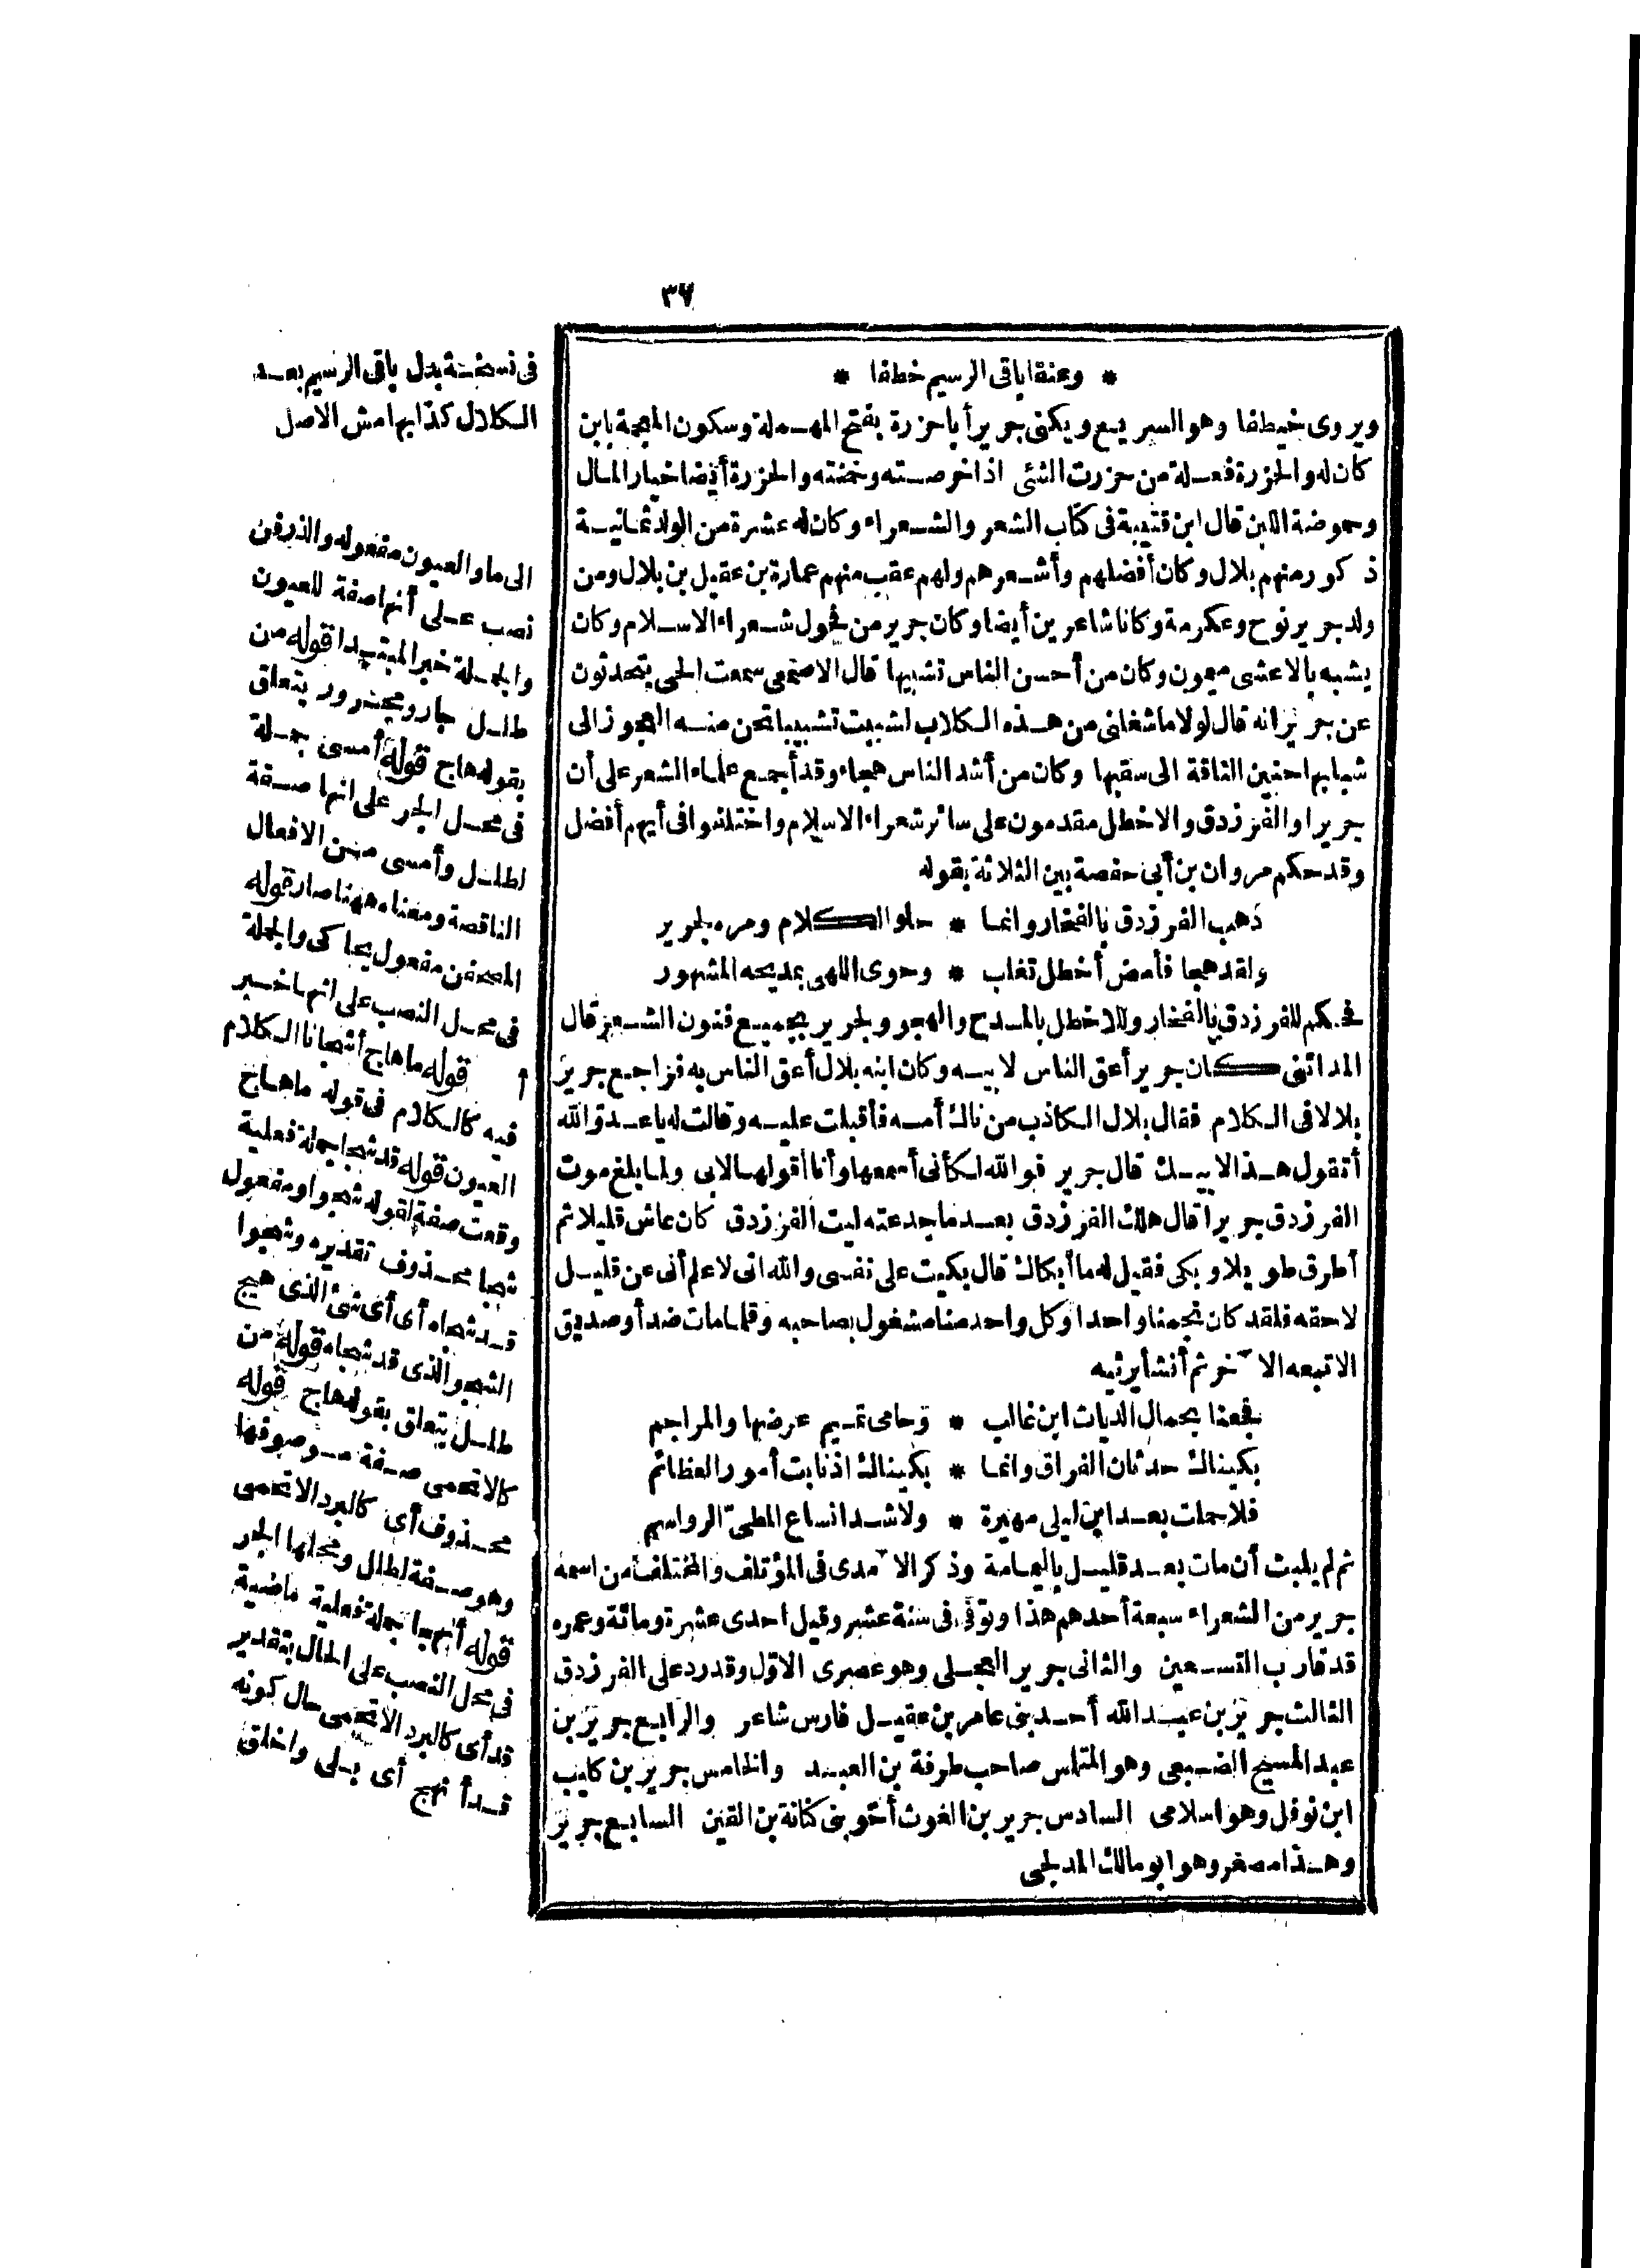 ٣٧
* وعنقا باقى الرسيم خطفا *
ويروى خيطفا وهو السريع ويكنى جرير أبا حزرة بفتح المهملة وسكون المعجمة بابن
كان له والحزرة فعلة من حزرت الشئ اذا خرصته وخمنته والحزرة أيضا خيار المال
وحموضة اللبن قال ابن قتيبة فى كتاب الشعر والشعراء وكان له عشرة من الولد ثمانية
ذكور منهم بلال وكان أفضلهم وأشعرهم ولهم عقب منهم عمارة بن عقيل بن بلال ومن
ولد جرير نوح وعكرمة وكانا شاعرين أيضا وكان جرير من فحول شعراء الاسلام وكان
يشبه بالاعشى ميمون وكان من أحسن الناس تشبيها قال الاصمعى سمعت الحى يتحدثون
عن جرير انه قال لولا ما شغلنى من هذه الكلاب لشببت تشبيبا تحن منه العجوز الى
شبابها حنين الناقة الى سقبها وكان من أشد الناس هجاء وقد أجمع علماء الشعر على أن
جريرا والفرزدق والاخطل مقدمون على سائر شعراء الاسلام واختلفوا فى أيهم أفضل
وقد حكم مروان بن أبى حفصة بين الثلاثة بقوله
ذهب الفرزدق بالفخار وانما * حلو الكلام ومره لجرير
ولقد هجا فأمض أخطل تغلب * وحوى اللهى بمديحه المشهور
فحكم للفرزدق بالفخار وللاخطل بالمدح والهجو ولجرير بجميع فنون الشعر قال
المدائنى كان جرير أعق الناس لابيه وكان ابنه بلال أعق الناس به فراجع جرير
بلالا فى الكلام فقال بلال الكاذب من ناك أمه فأقبلت عليه وقالت له يا عدو الله
أتقول هذا لابيك قال جرير فوالله لكأنى أسمعها وأنا أقولها لابى ولما بلغ موت
الفرزدق جريرا قال هلك الفرزدق بعد ما جدعته ليت الفرزدق كان عاش قليلا ثم
أطرق طويلا وبكى فقيل له ما أبكاك قال بكيت على نفسى والله انى لاعلم أنى عن قليل
لاحقه فلقد كان نجمنا واحدا وكل واحد منا مشغول بصاحبه وقلما مات ضد أو صديق
الا تبعه الآخر ثم أنشأ يرثيه
فجعنا بحمال الديات ابن غالب * وحامى تميم عرضها والمراجم
بكيناك حدثان الفراق وانما * بكيناك اذ نابت أمور العظائم
فلا حملت بعد ابن ليلى مهيرة * ولا شد انساع المطىّ الرواسم
ثم لم يلبث أن مات بعد قليل باليمامة وذكر الآمدى فى المؤتلف والمختلف من اسمه
جرير من الشعراء سبعة أحدهم هذا وتوفى فى سنة عشر وقيل احدى عشرة ومائة وعمره
قد قارب التسعين والثانى جرير العجلى وهو عصرى الاول وقد رد على الفرزدق
الثالث جرير بن عبد الله أحد بنى عامر بن عقيل فارس شاعر والرابع جرير بن
عبد المسيح الضبعى وهو المتلمس صاحب طرفة بن العبد والخامس جرير بن كليب
ابن نوفل وهو اسلامى السادس جرير بن الغوث أخو بنى كنانة بن القين السابع جرير
وهذا مصغر وهو ابو مالك المدلجى
فى نسخة بدل باقى الرسيم بعد
الكلال كذا بهامش الاصل
الى ما والعيون مفعوله والذرفن
نصب على أنها صفة للعيون
والجملة خبر المبتدا قوله من
طلل جار ومجرور يتعلق
بقوله هاج قوله أمسى جملة
فى محل الجر على انها صفة
لطلل وأمسى من الافعال
الناقصة ومعناه ههنا صار قوله
المصحفن مفعول يحاكى والجملة
فى محل النصب على انها خبر
أ قوله ما هاج أشجانا الكلام
فيه كالكلام فى قوله ما هاج
العيون قوله قد شجا جملة فعلية
وقعت صفة لقوله شجوا ومفعول
شجا محذوف تقديره وشجوا
قد شجاه أى أى شئ الذى هيج
الشجو الذى قد شجاه قوله من
طلل يتعلق بقوله هاج قوله
كالاتحمى صفة موصوفها
محذوف أى كالبرد الاتحمى
وهو صفة لطلل ومحلها الجر
قوله أنهجا جملة فعلية ماضية
فى محل النصب على الحال بتقدير
قد أى كالبرد الاتحمى حال كونه
قد أنهج أى بلى واخلق